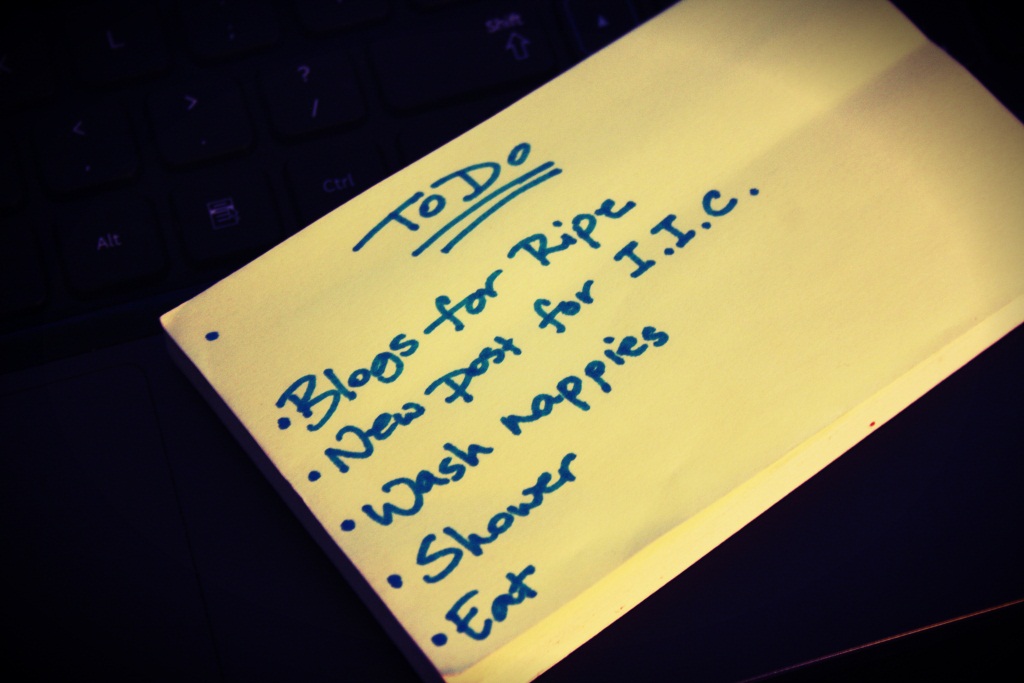 L
;
Shift
<
,
>
.
?
/
Alt
Ctrl
ToDo
•
• Blogs for Ripe
• New Post for I.I.C.
• Wash nappies
• Shower
• Eat